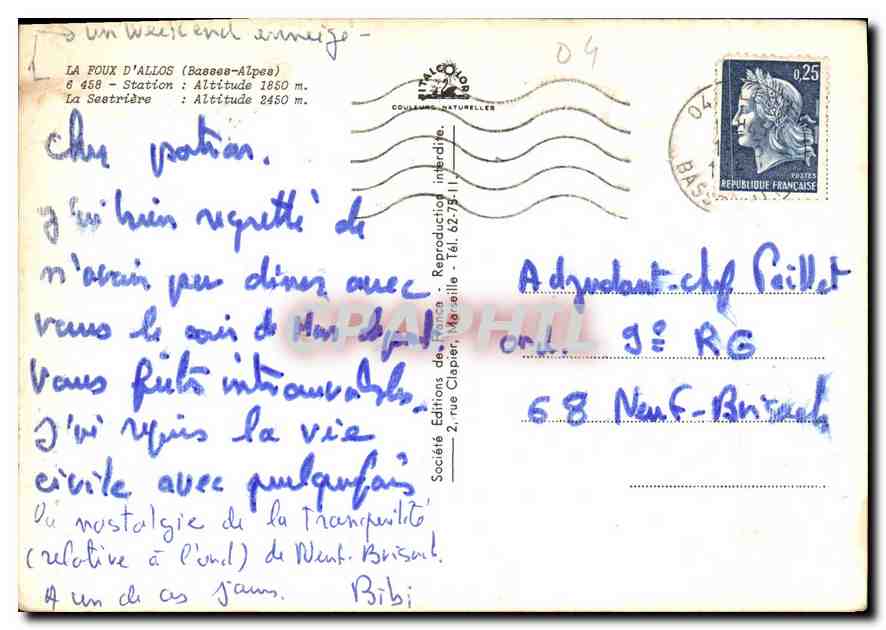 un weekend enneigé -
LA FOUX D'ALLOS (Basses-Alpes)
6 458 - Station : Altitude 1850 m.
La Sestrière : Altitude 2450 m.
ITALCOLOR
COULEURS NATURELLES
04
0,25
POSTES
REPUBLIQUE FRANÇAISE
04
BASS
Cher patron.
J'ai bien regretté de
n'avoir pu diner avec
vous le soir de mon départ.
Vous étiez introuvables.
J'ai repris la vie
civile avec quelquefois
la nostalgie de la Tranquilité
(relative à l'ord) de Neuf-Brisach.
A un de ces jours. Bibi
Société Editions de France - Reproduction interdite.
2, rue Clapier, Marseille - Tél. 62-75-11
Adjudant-chef Paillet
ord. 9e RG
68 Neuf-Brisach
CPAPHIL